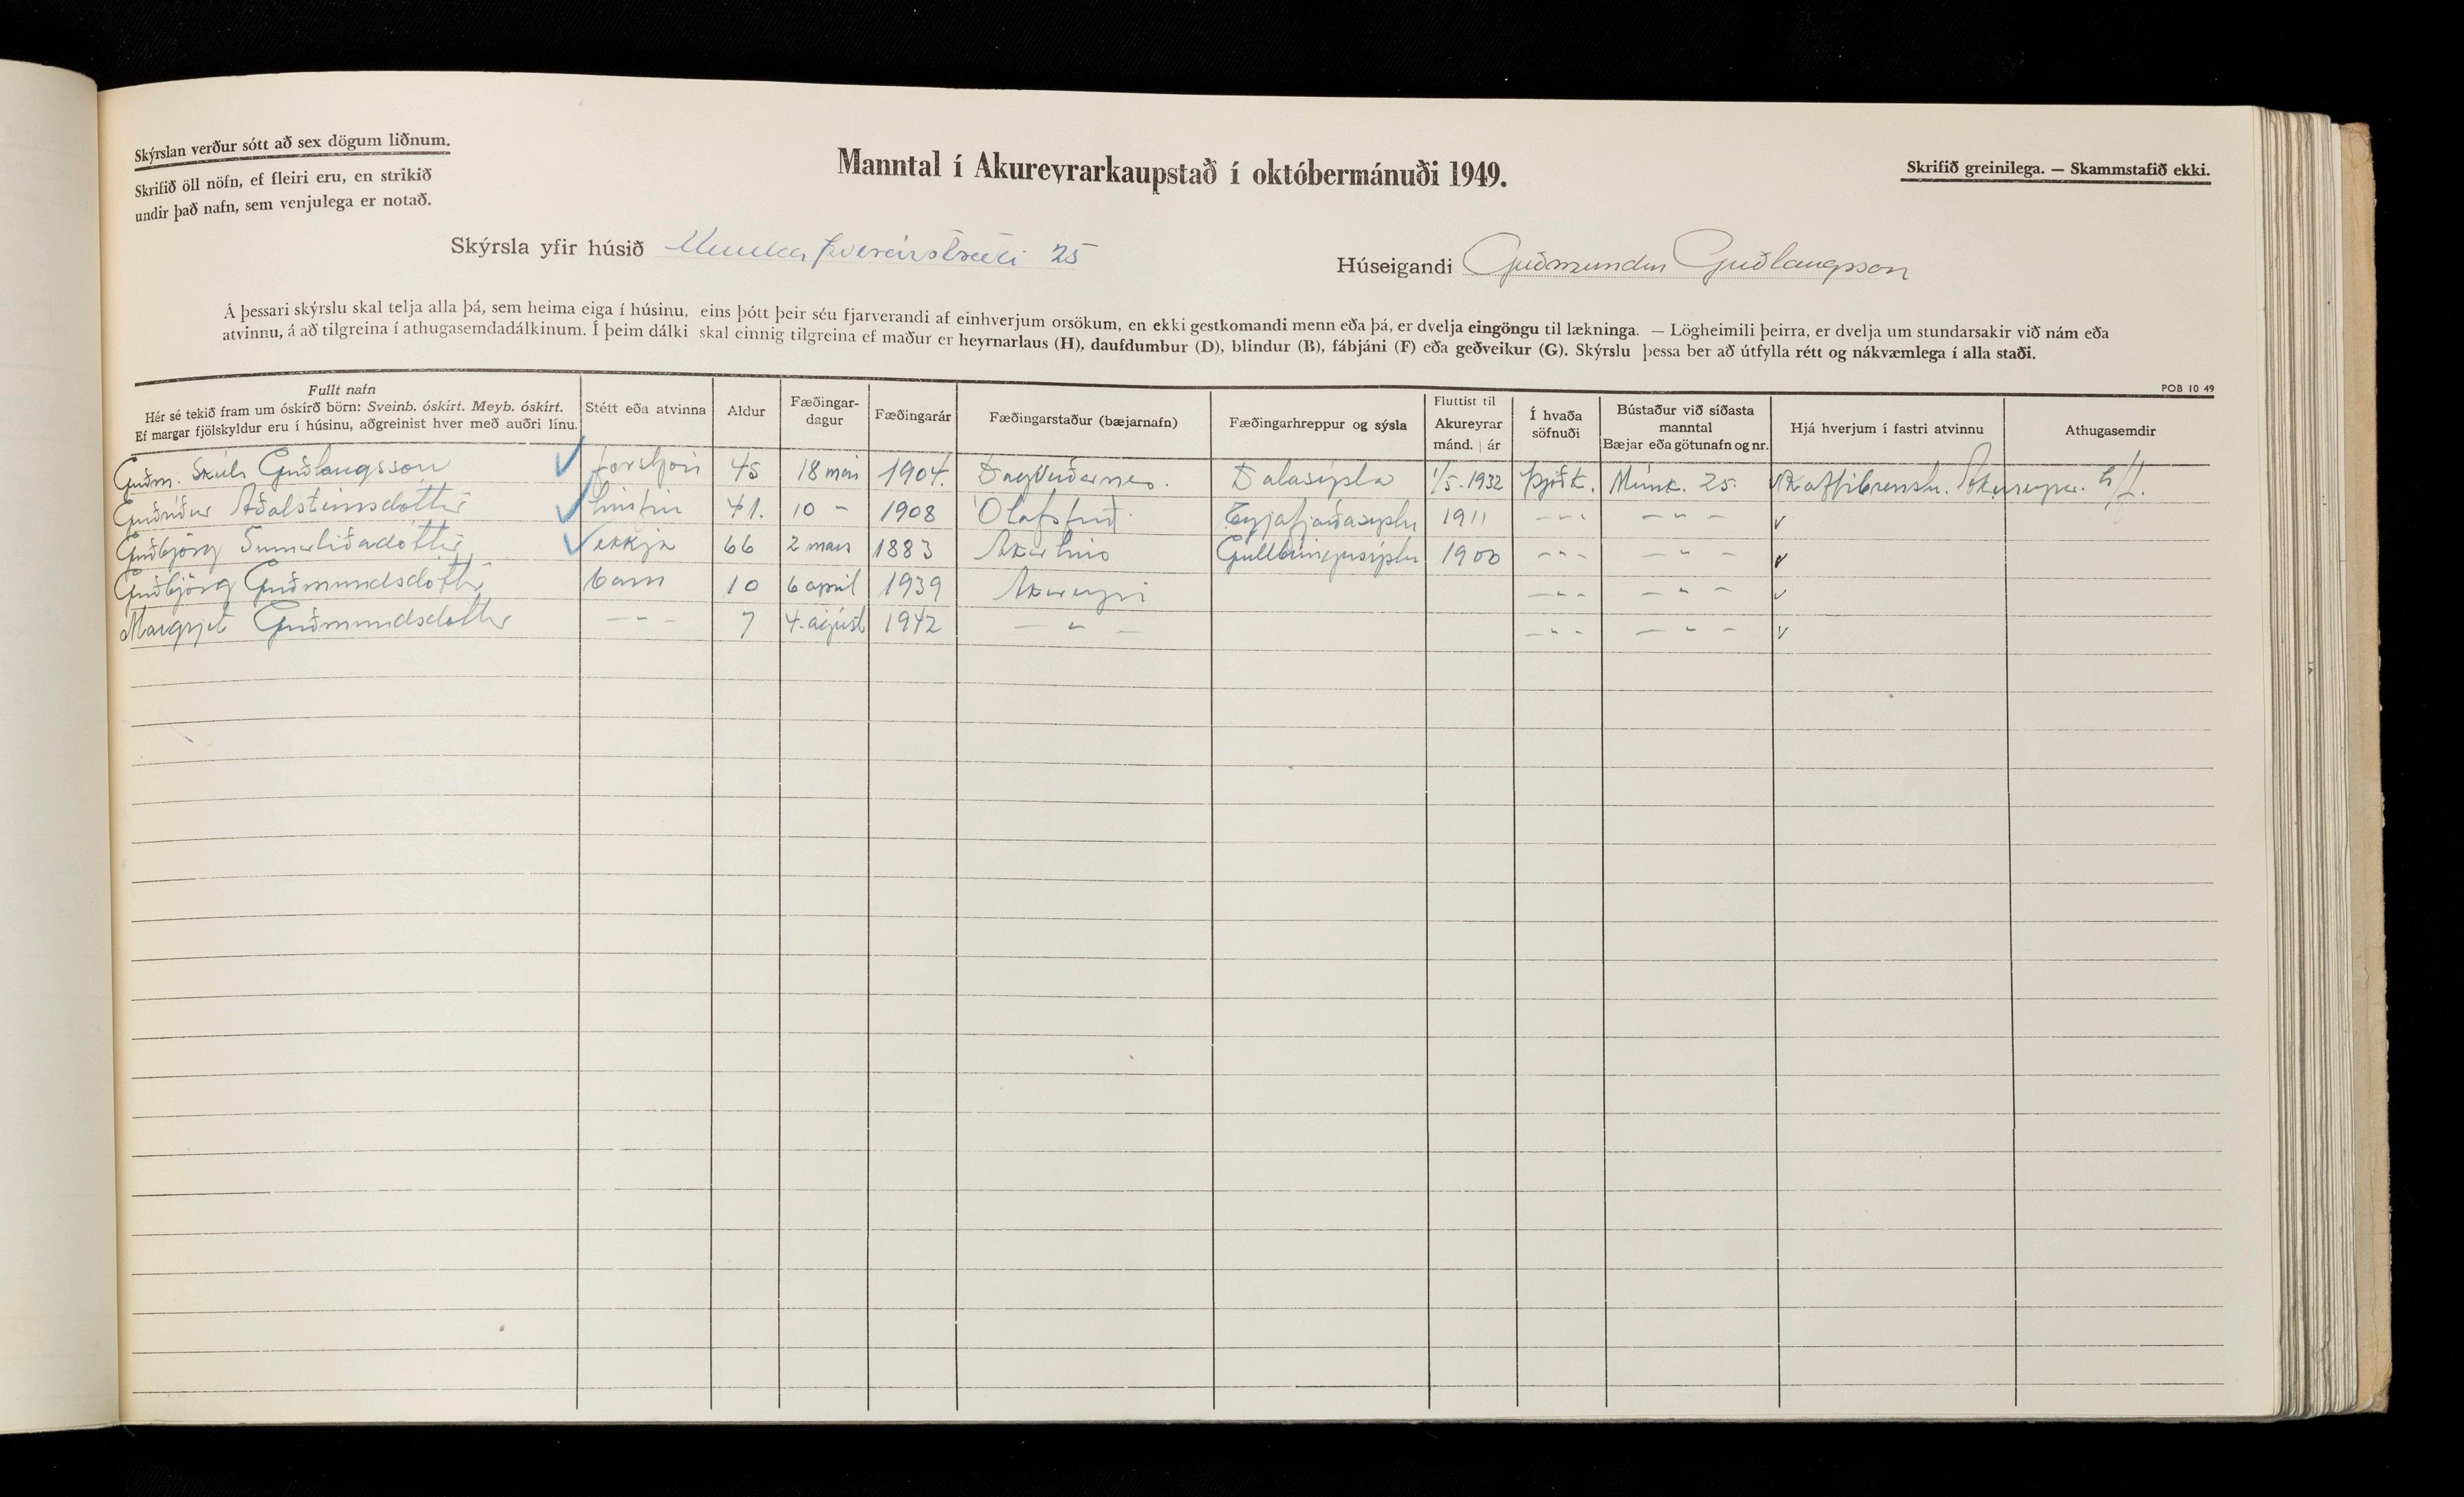 Skýrslan verður sótt að sex dögum liðnum.
Skrifið öll nöfn, ef fleiri eru, en strikið
undir það nafn, sem venjulega er notað.
Manntal í Akureyrarkaupstað í októbermánuði 1949.
Skrifið greinilega. — Skammstafið ekki.
Skýrsla yfir húsið Munkaþverárstræti 25
Húseigandi Guðmundur Guðlaugsson
Á þessari skýrslu skal telja alla þá, sem heima eiga í húsinu, eins þótt þeir séu fjarverandi af einhverjum orsökum, en ekki gestkomandi menn eða þá, er dvelja eingöngu til lækninga. — Lögheimili þeirra, er dvelja um stundarsakir við nám eða
atvinnu, á að tilgreina í athugasemdadálkinum. Í þeim dálki skal einnig tilgreina ef maður er heyrnarlaus (H), daufdumbur (D), blindur (B), fábjáni (F) eða geðveikur (G). Skýrslu þessa ber að útfylla rétt og nákvæmlega í alla staði.
POB 10 49
Fullt nafn
Hér sé tekið fram um óskírð börn: Sveinb. óskírt. Meyb. óskírt.
Ef margar fjölskyldur eru í húsinu, aðgreinist hver með auðri línu.
Stétt eða atvinna
Aldur
Fæðingar-
dagur
Fæðingarár
Fæðingarstaður (bæjarnafn)
Fæðingarhreppur og sýsla
Fluttist til
Akureyrar
mánd. | ár
Í hvaða
söfnuði
Bústaður við síðasta
manntal
Bæjar eða götunafn og nr.
Hjá hverjum í fastri atvinnu
Athugasemdir
Guðm. Skúli Guðlaugsson ✓ forstjóri 45 18 maí 1904. Dagverðarnes. Dalasýsla 1/5-1932 Þjóðk. Múnk. 25. Kaffibrensla Akureyrar h/f.
Guðríður Aðalsteinsdóttir ✓ húsfrú 41. 10 – 1908 Ólafsfirði Eyjafjarðasýslu 1911 – " – – " – ✓
Guðbjörg Sumarliðadóttir ✓ ekkja 66 2 mars 1883 Gullbringusýslu 1900 – " – – " – ✓
Guðbjörg Guðmundsdóttir barn 10 6 apríl 1939 Akureyri – " – – " – ✓
Margrjet Guðmundsdóttir – " – 7 4. ágúst 1942 – " – – " – – " – ✓